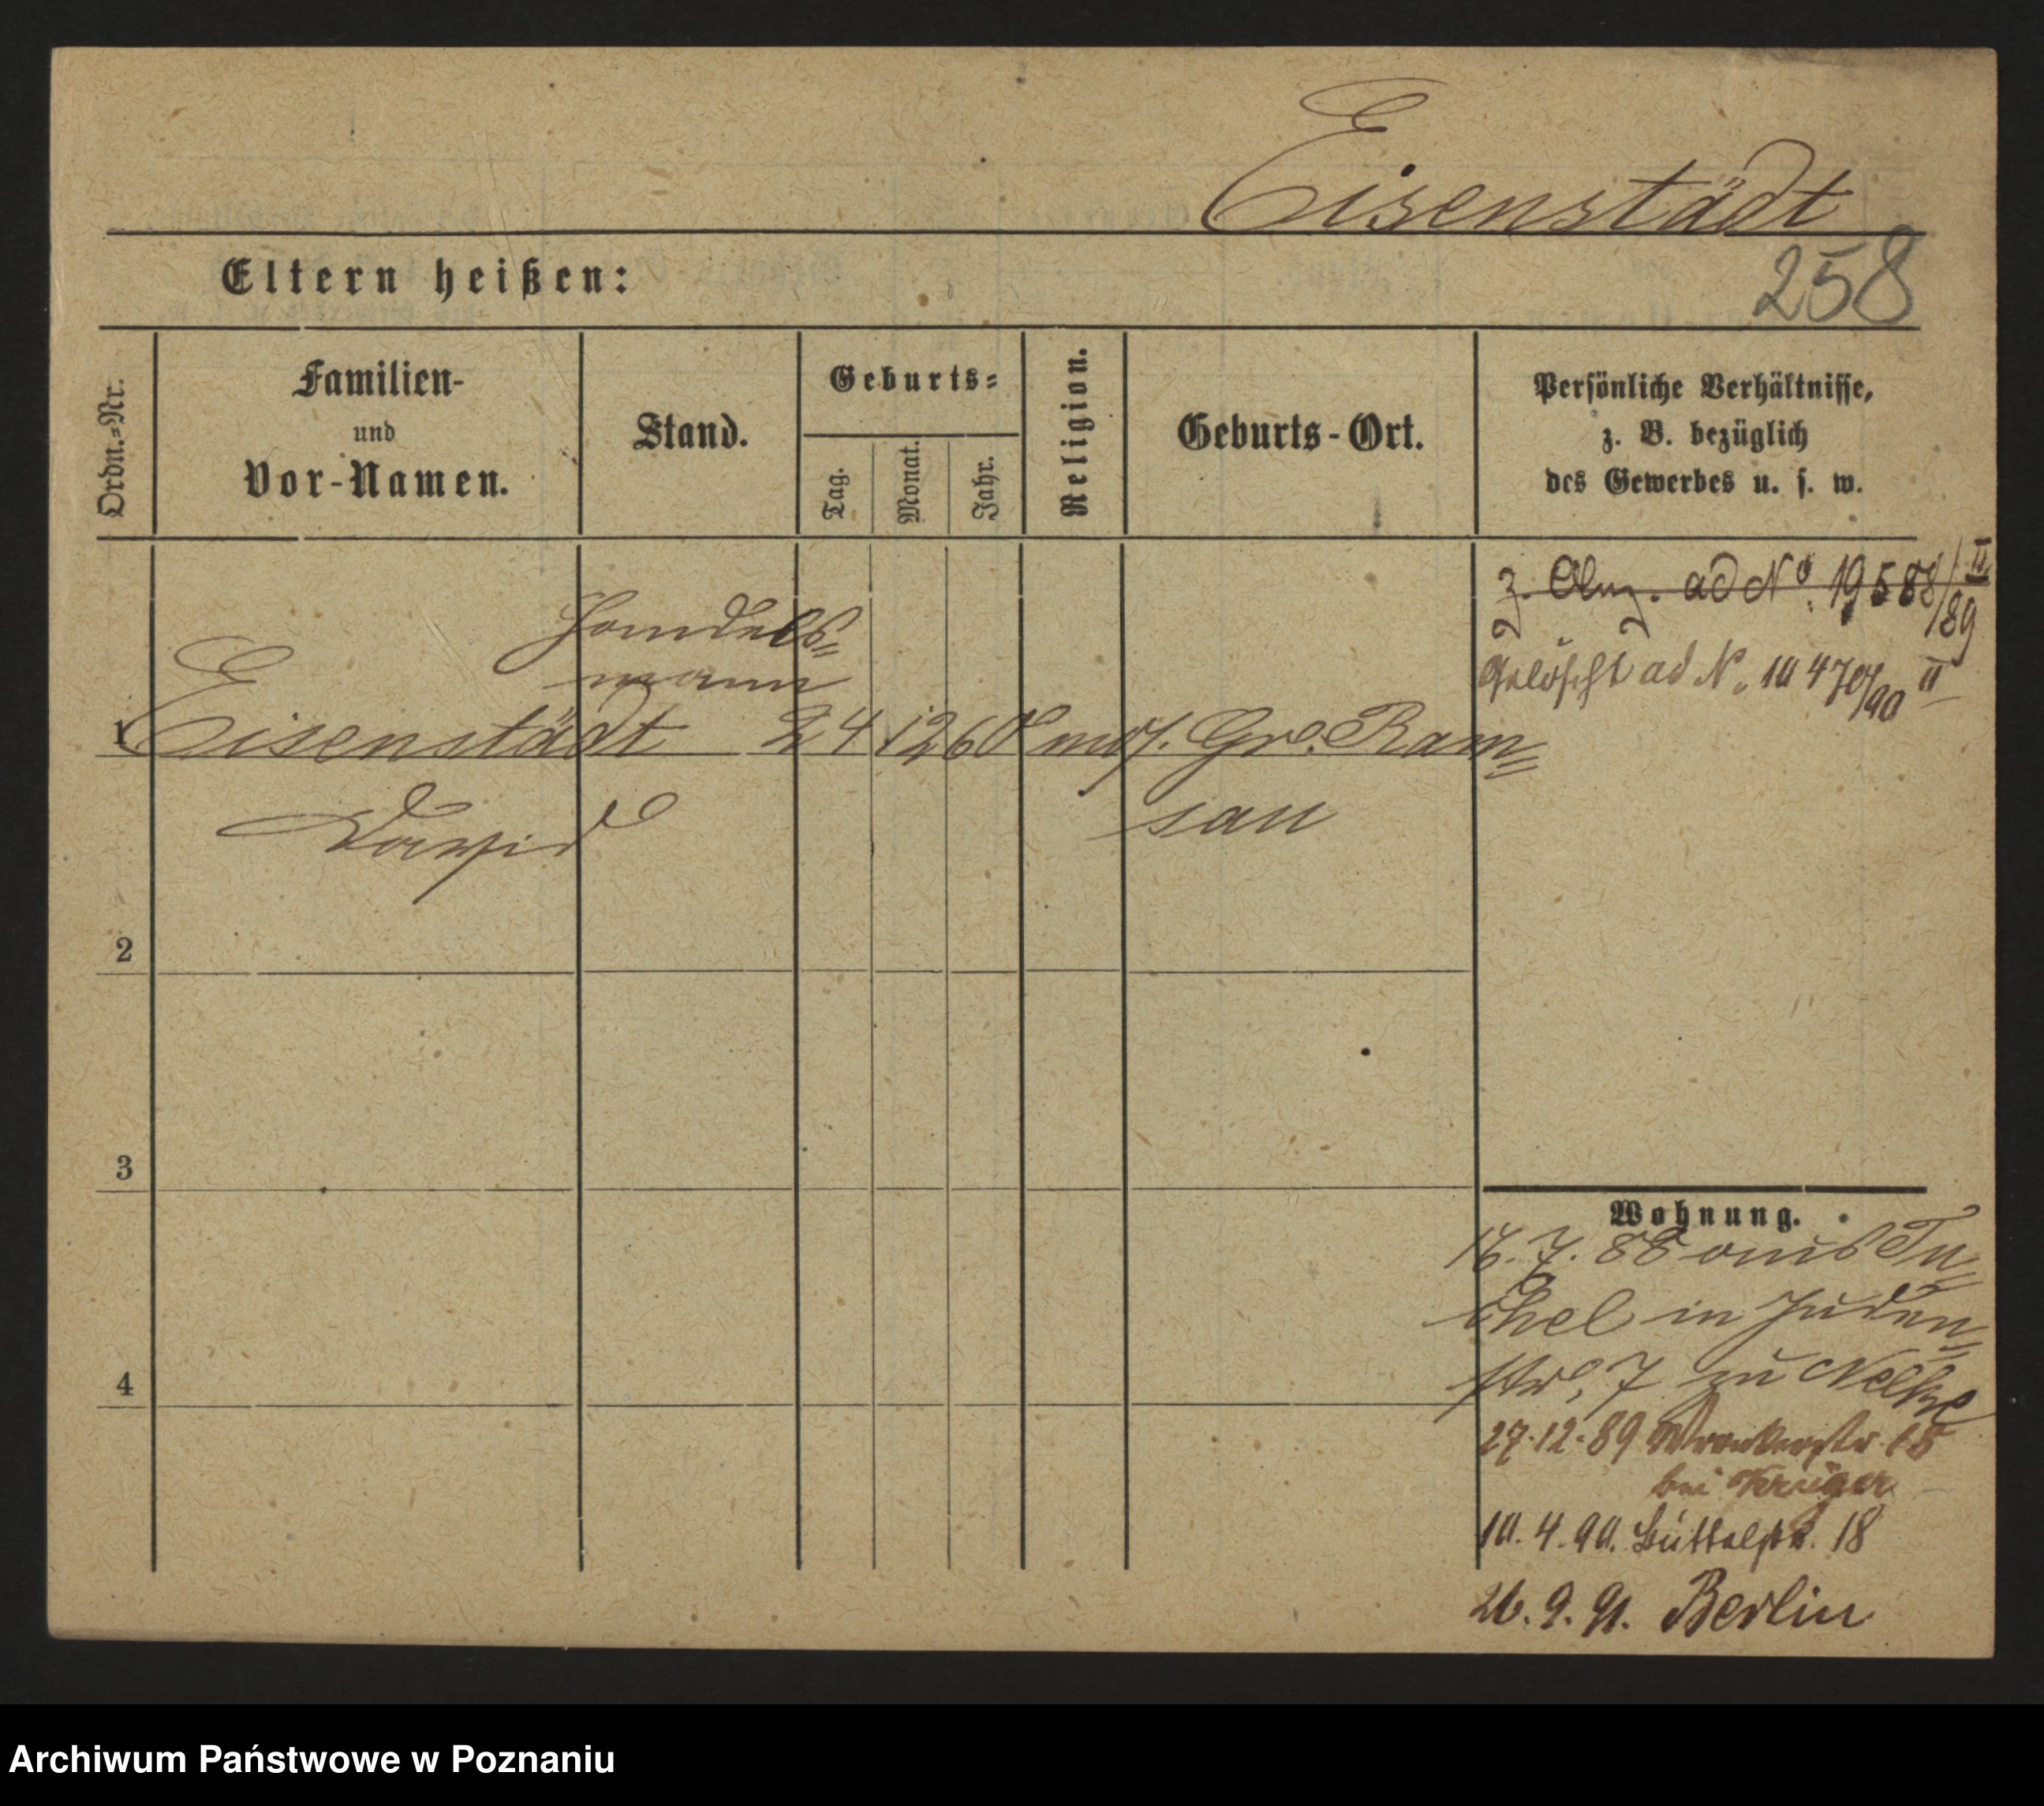 Eisenstädt
258
Eltern heißen:
Ordn.-Nr.
Familien-
und
Vor-Namen.
Stand.
Geburts-
Tag.
Monat.
Jahr.
Religion.
Geburts-Ort.
Persönliche Verhältnisse,
z. B. bezüglich
des Gewerbes u. s. w.
z. Anz. ad No. 19588/89 II
Gelöscht ad N. 10470/90 II
Handels-
mann
1 Eisenstädt 24 12 60 mos. Gr. Ram-
David
sau
2
3
4
Wohnung.
16.7.88 aus Tu-
chel in Juden-
str. 7 zu
27.12.89 Wronkerstr. 15
bei Krüger
10.4.90. Büttelstr. 18
26.9.91. Berlin
Archiwum Państwowe w Poznaniu